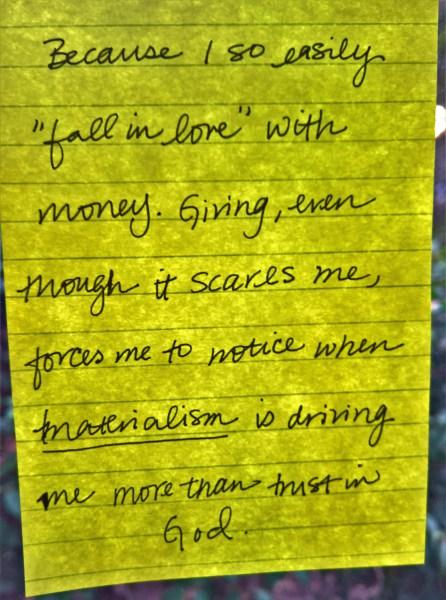 Because I so easily
"fall in love" with
money. Giving, even
though it scares me,
forces me to notice when
materialism is driving
me more than trust in
God.